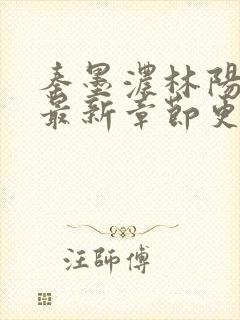 秦墨濃林陽
最新章節更
汪師傅